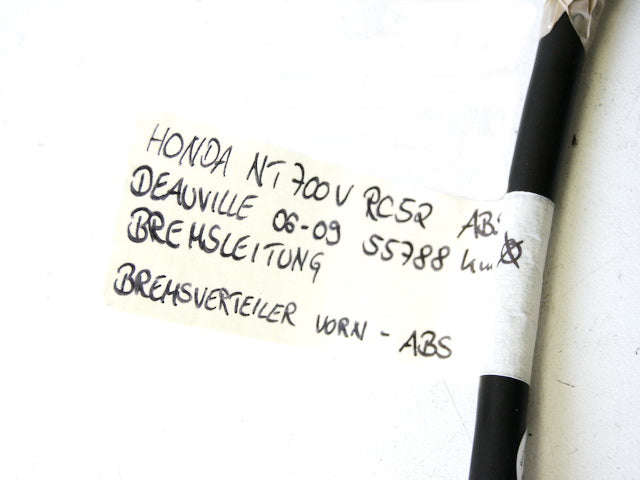 HONDA NT700V RC52 ABS
DEAUVILLE 06-09 55788 km
BREMSLEITUNG
BREMSVERTEILER VORN - ABS